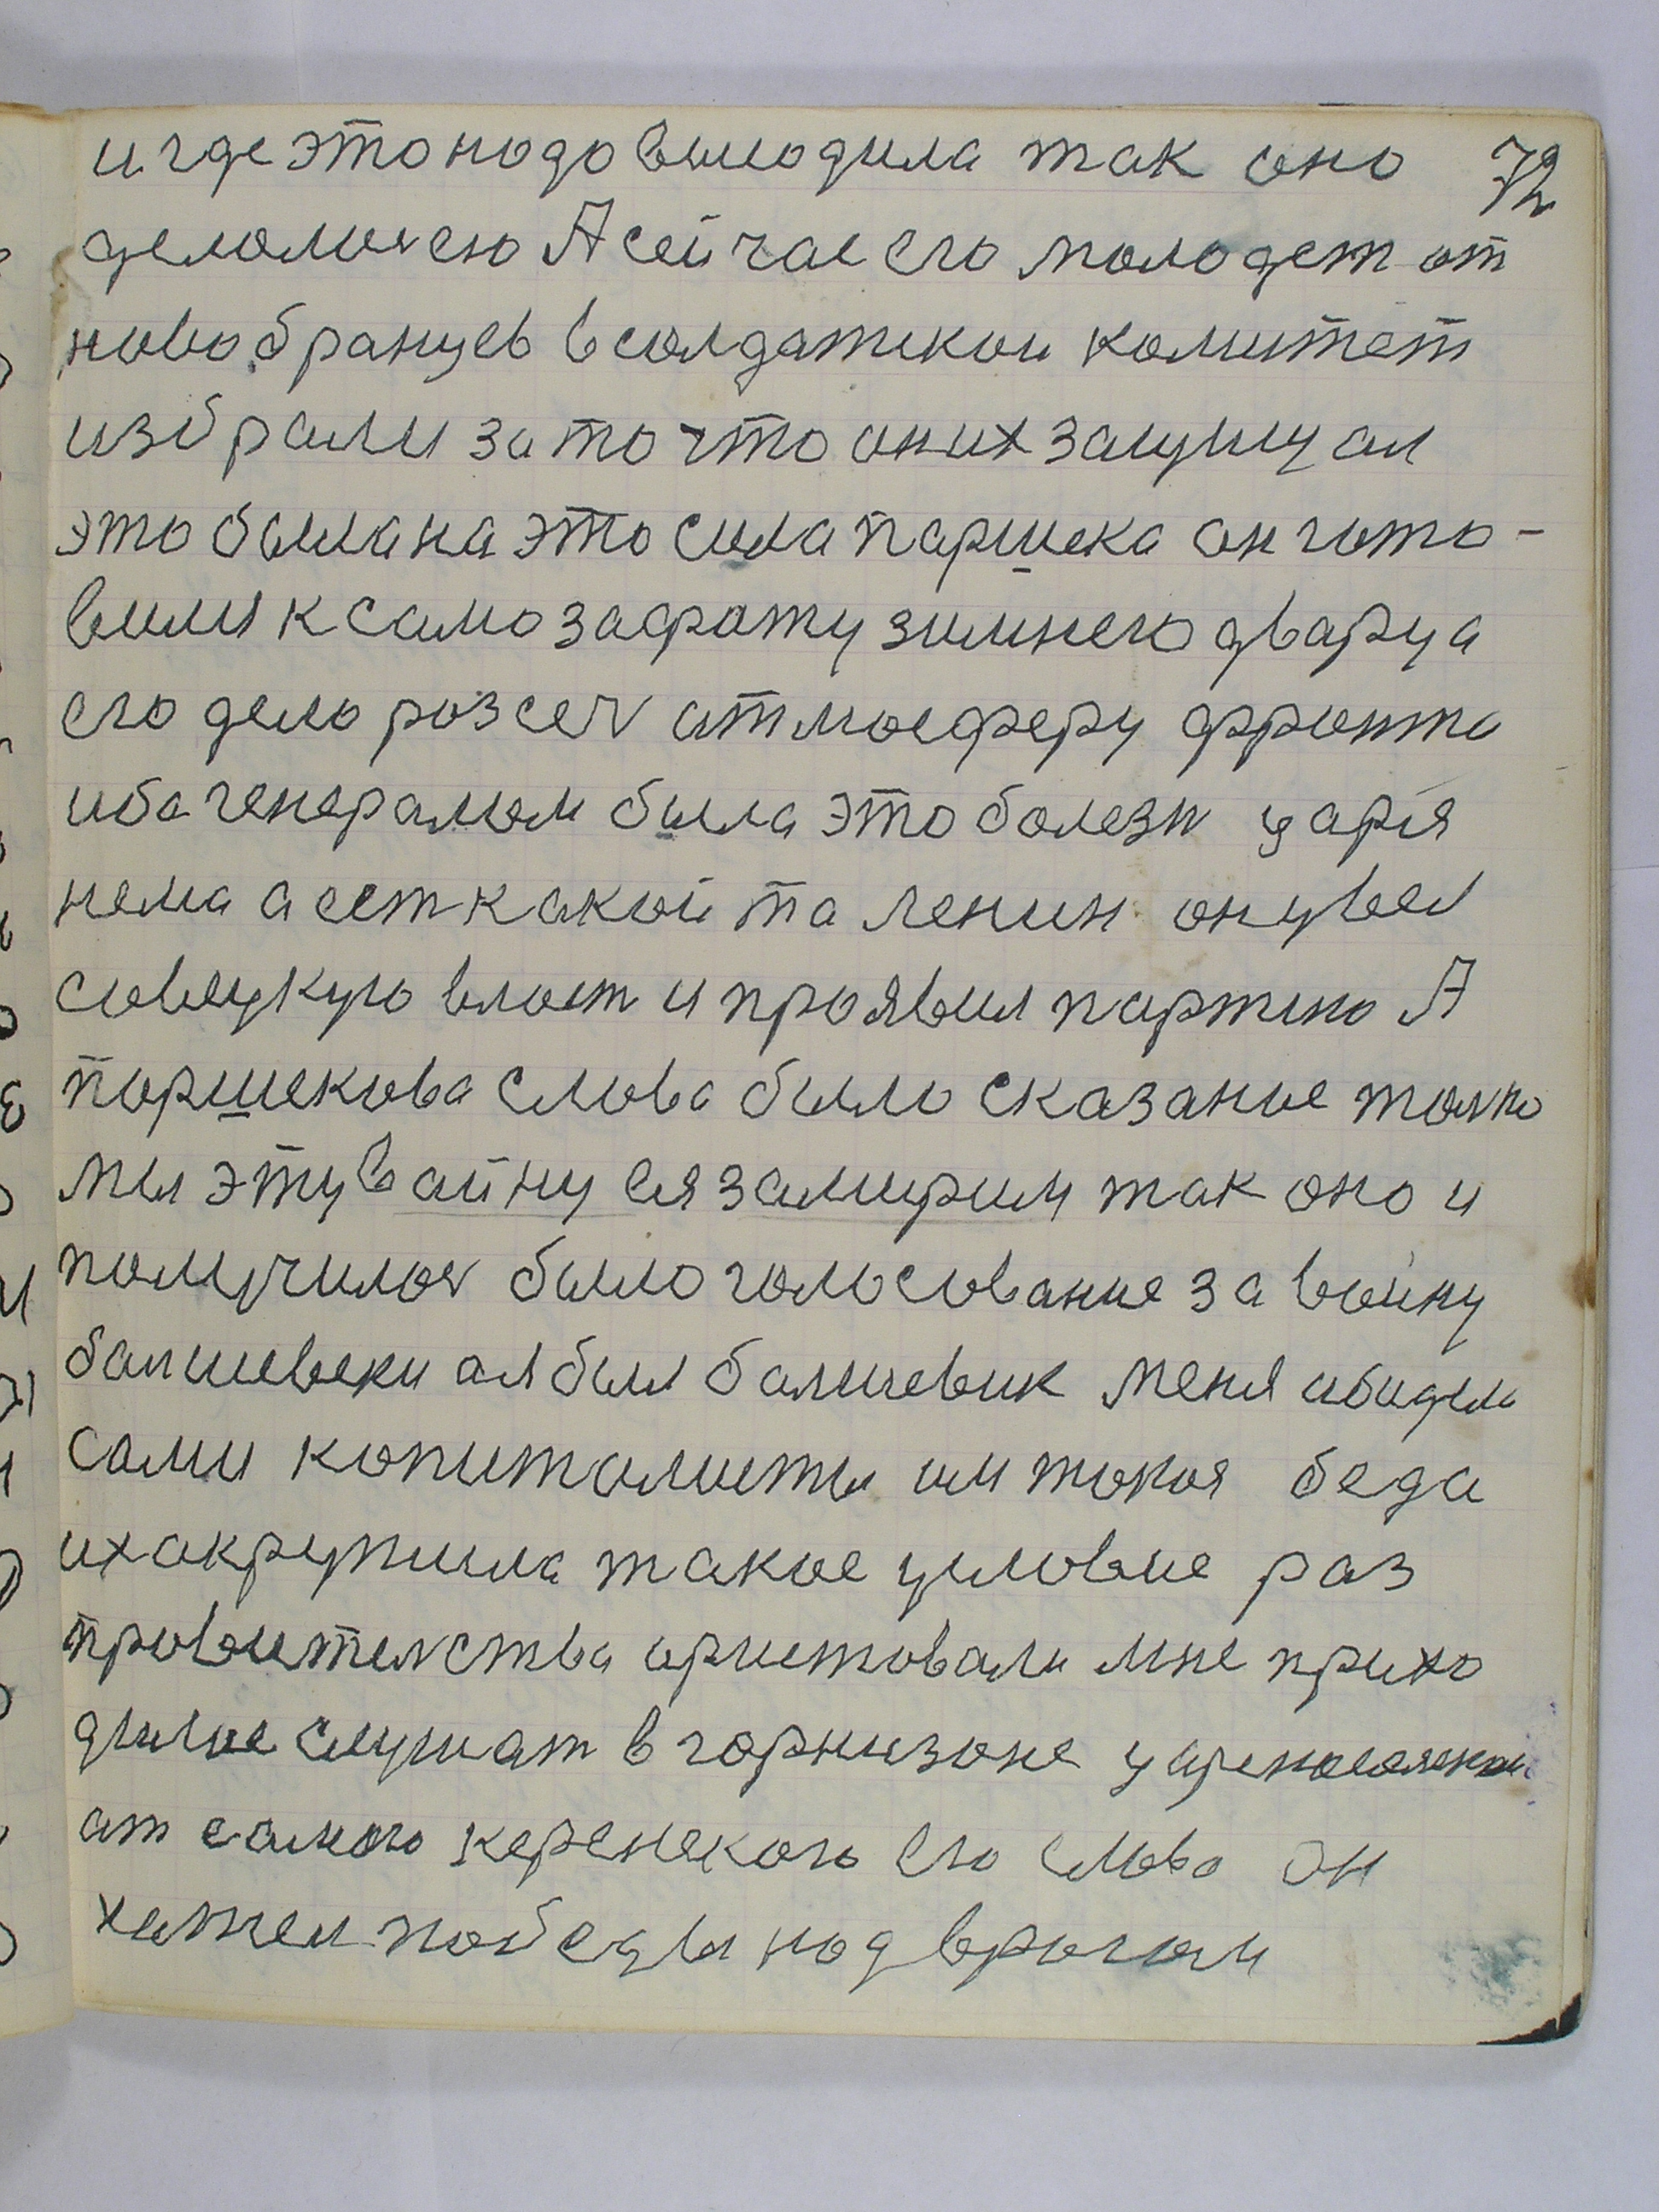 и где это надо выходила так оно 72
делалось ею А сейчас его молодеж от
новобранцев в солдатской комитет
избрали за то что он их защищал
это была на это сила паршека он гото-
вился к само зафату зимнего дварца
его дело розсеч атмосферу фронта
иба генералом была это болезн царя
нема а ест какой та ленин он увел
совецкую власт и проявил партию А
паршекова слова было сказаное толко
мы эту вайну ся замирим так оно и
получилос было голосование за войну
балшевеки а я был балшевик меня
сами копиталисты им токая беда
их акрутила такое условие раз
провителства ариставали мне прихо
дилос слушат в гарнизоне
ат самого керенского его слова он
хател победы над врагом